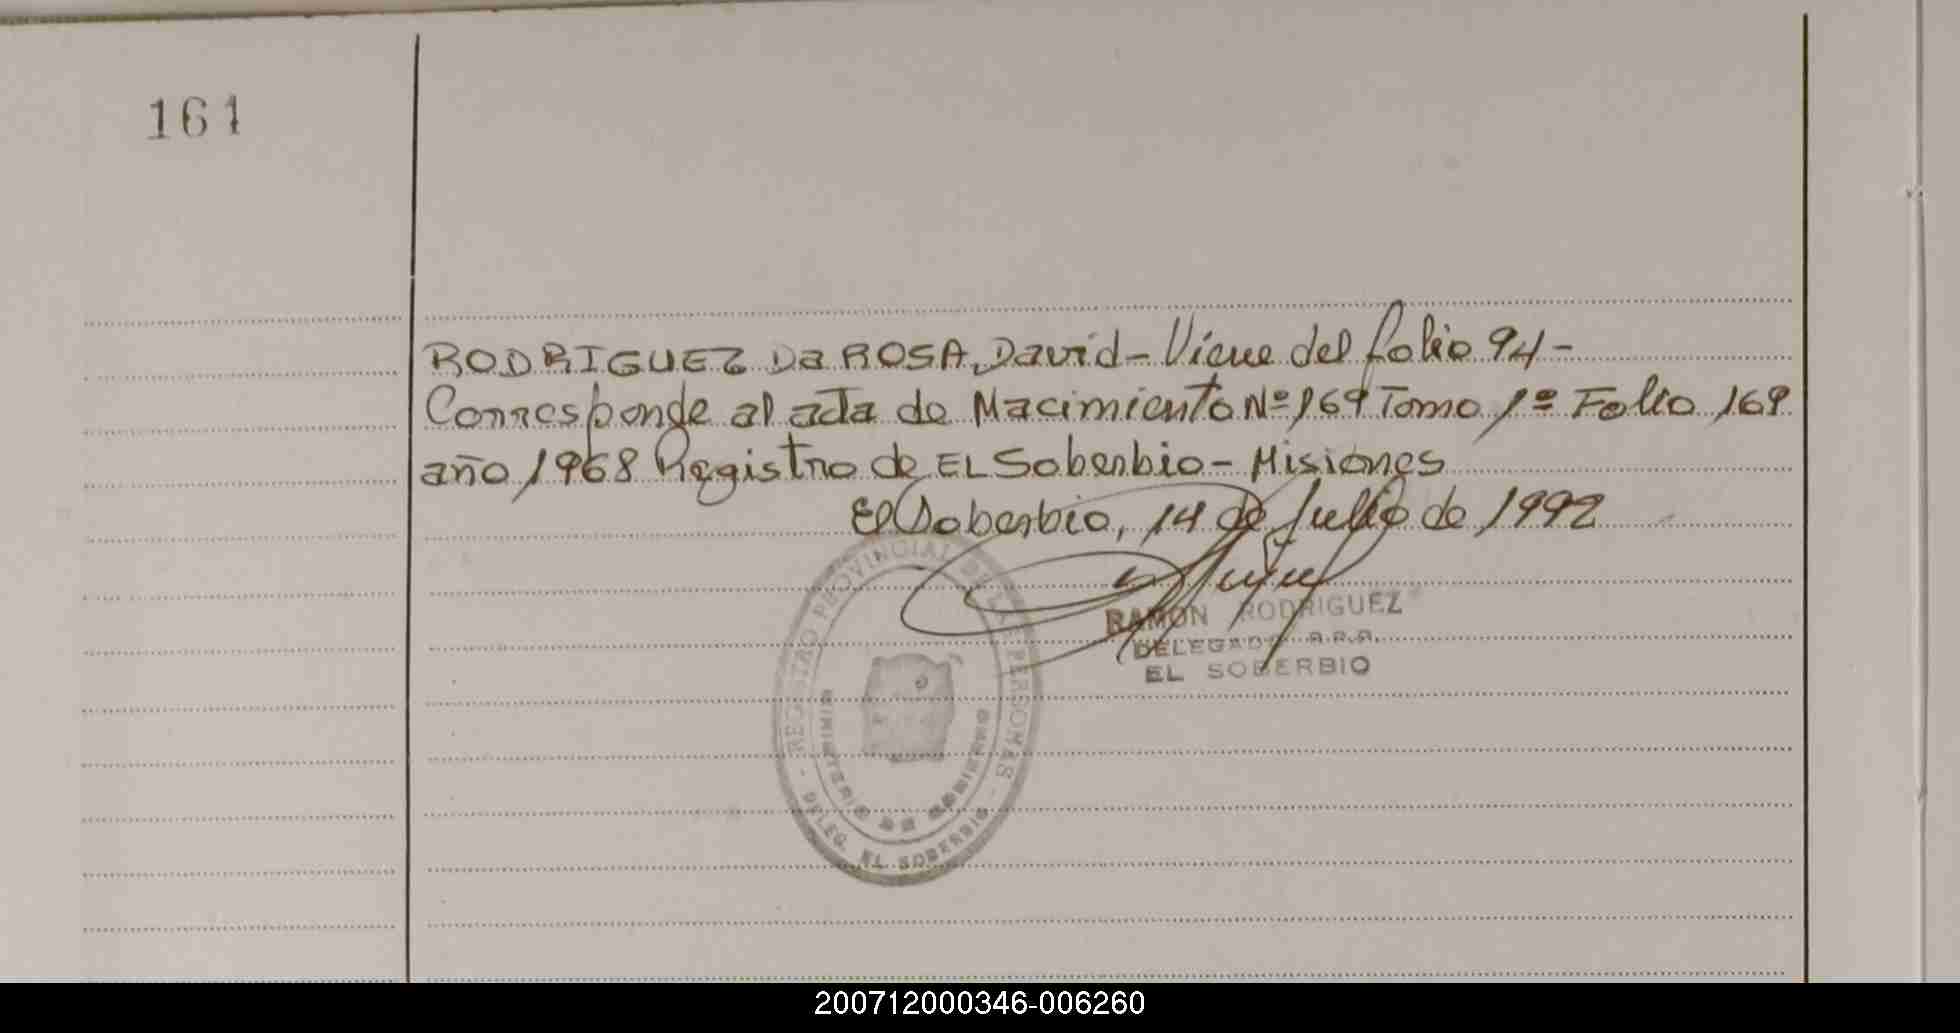 161
RODRIGUEZ Da ROSA, David - Viene del folio 94 -
Corresponde al acta de Nacimiento Nº 169 Tomo 1º Folio 169
año 1968 Registro de EL Soberbio - Misiones
El Soberbio, 14 de Julio de 1992
RAMON RODRIGUEZ
DELEGADO R.P.P.
EL SOBERBIO
REGISTRO PROVINCIAL DE LAS PERSONAS
MINISTERIO DE GOBIERNO
- DELEG. EL SOBERBIO -
200712000346-006260